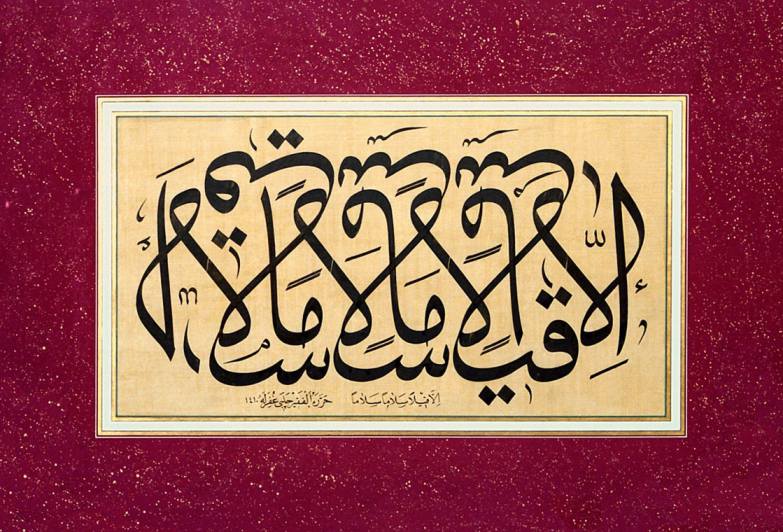 إِلَّا قِيلًا سَلَامًا سَلَامًا
الا قيلا سلاما سلاما
حرره الفقير چلبي غفر له